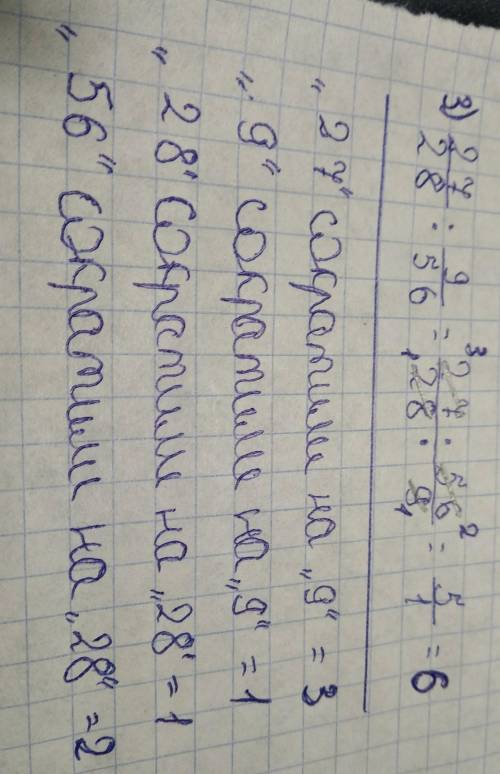 3) 27/28 : 9/56 = 27 · 56 / 28 · 9 = 5/1 = 6
3 2
1 1
„27“ сократили на „9“ = 3
„9“ сократили на „9“ = 1
„28“ сократили на „28“ = 1
„56“ сократили на „28“ = 2